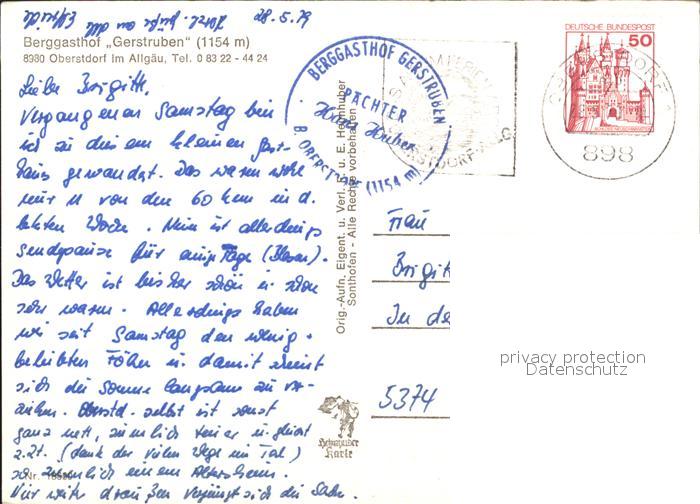 28.5.79
Berggasthof „Gerstruben” (1154 m)
8980 Oberstdorf im Allgäu, Tel. 0 83 22 - 44 24
Liebe Brigitt,
Vergangenen Samstag bin
ich zu diesem kleinen Gast-
haus gewandert. Das waren wohl
nur 11 von den 60 km in d.
letzten Woche. Nun ist allerdings
Sendepause für einige Tage (Blasen).
Das Wetter ist bisher schön u. schon
sehr warm. Allerdings haben
wir seit Samstag den wenig
beliebten Föhn u. damit scheint
sich die Sonne langsam zu ver-
ziehen. Oberstd. selbst ist sonst
ganz nett, ziemlich teuer u. gleicht
z.Zt. (dank der vielen Wege im Tal)
so ziemlich einem Altersheim.
Nur weiter draußen verjüngt sich die Sache.
Nr. 1852
BERGGASTHOF GERSTRUBEN
PÄCHTER
Hans Huber
8 OBERSTDORF (1154 m)
Orig.-Aufn. Eigent. u. Verl. L. u. E. Heimhuber
Sonthofen - Alle Rechte vorbehalten
Heimhuber
Karte
DEUTSCHE BUNDESPOST
50
898
Frau
Brigit
In de
5374
privacy protection
Datenschutz